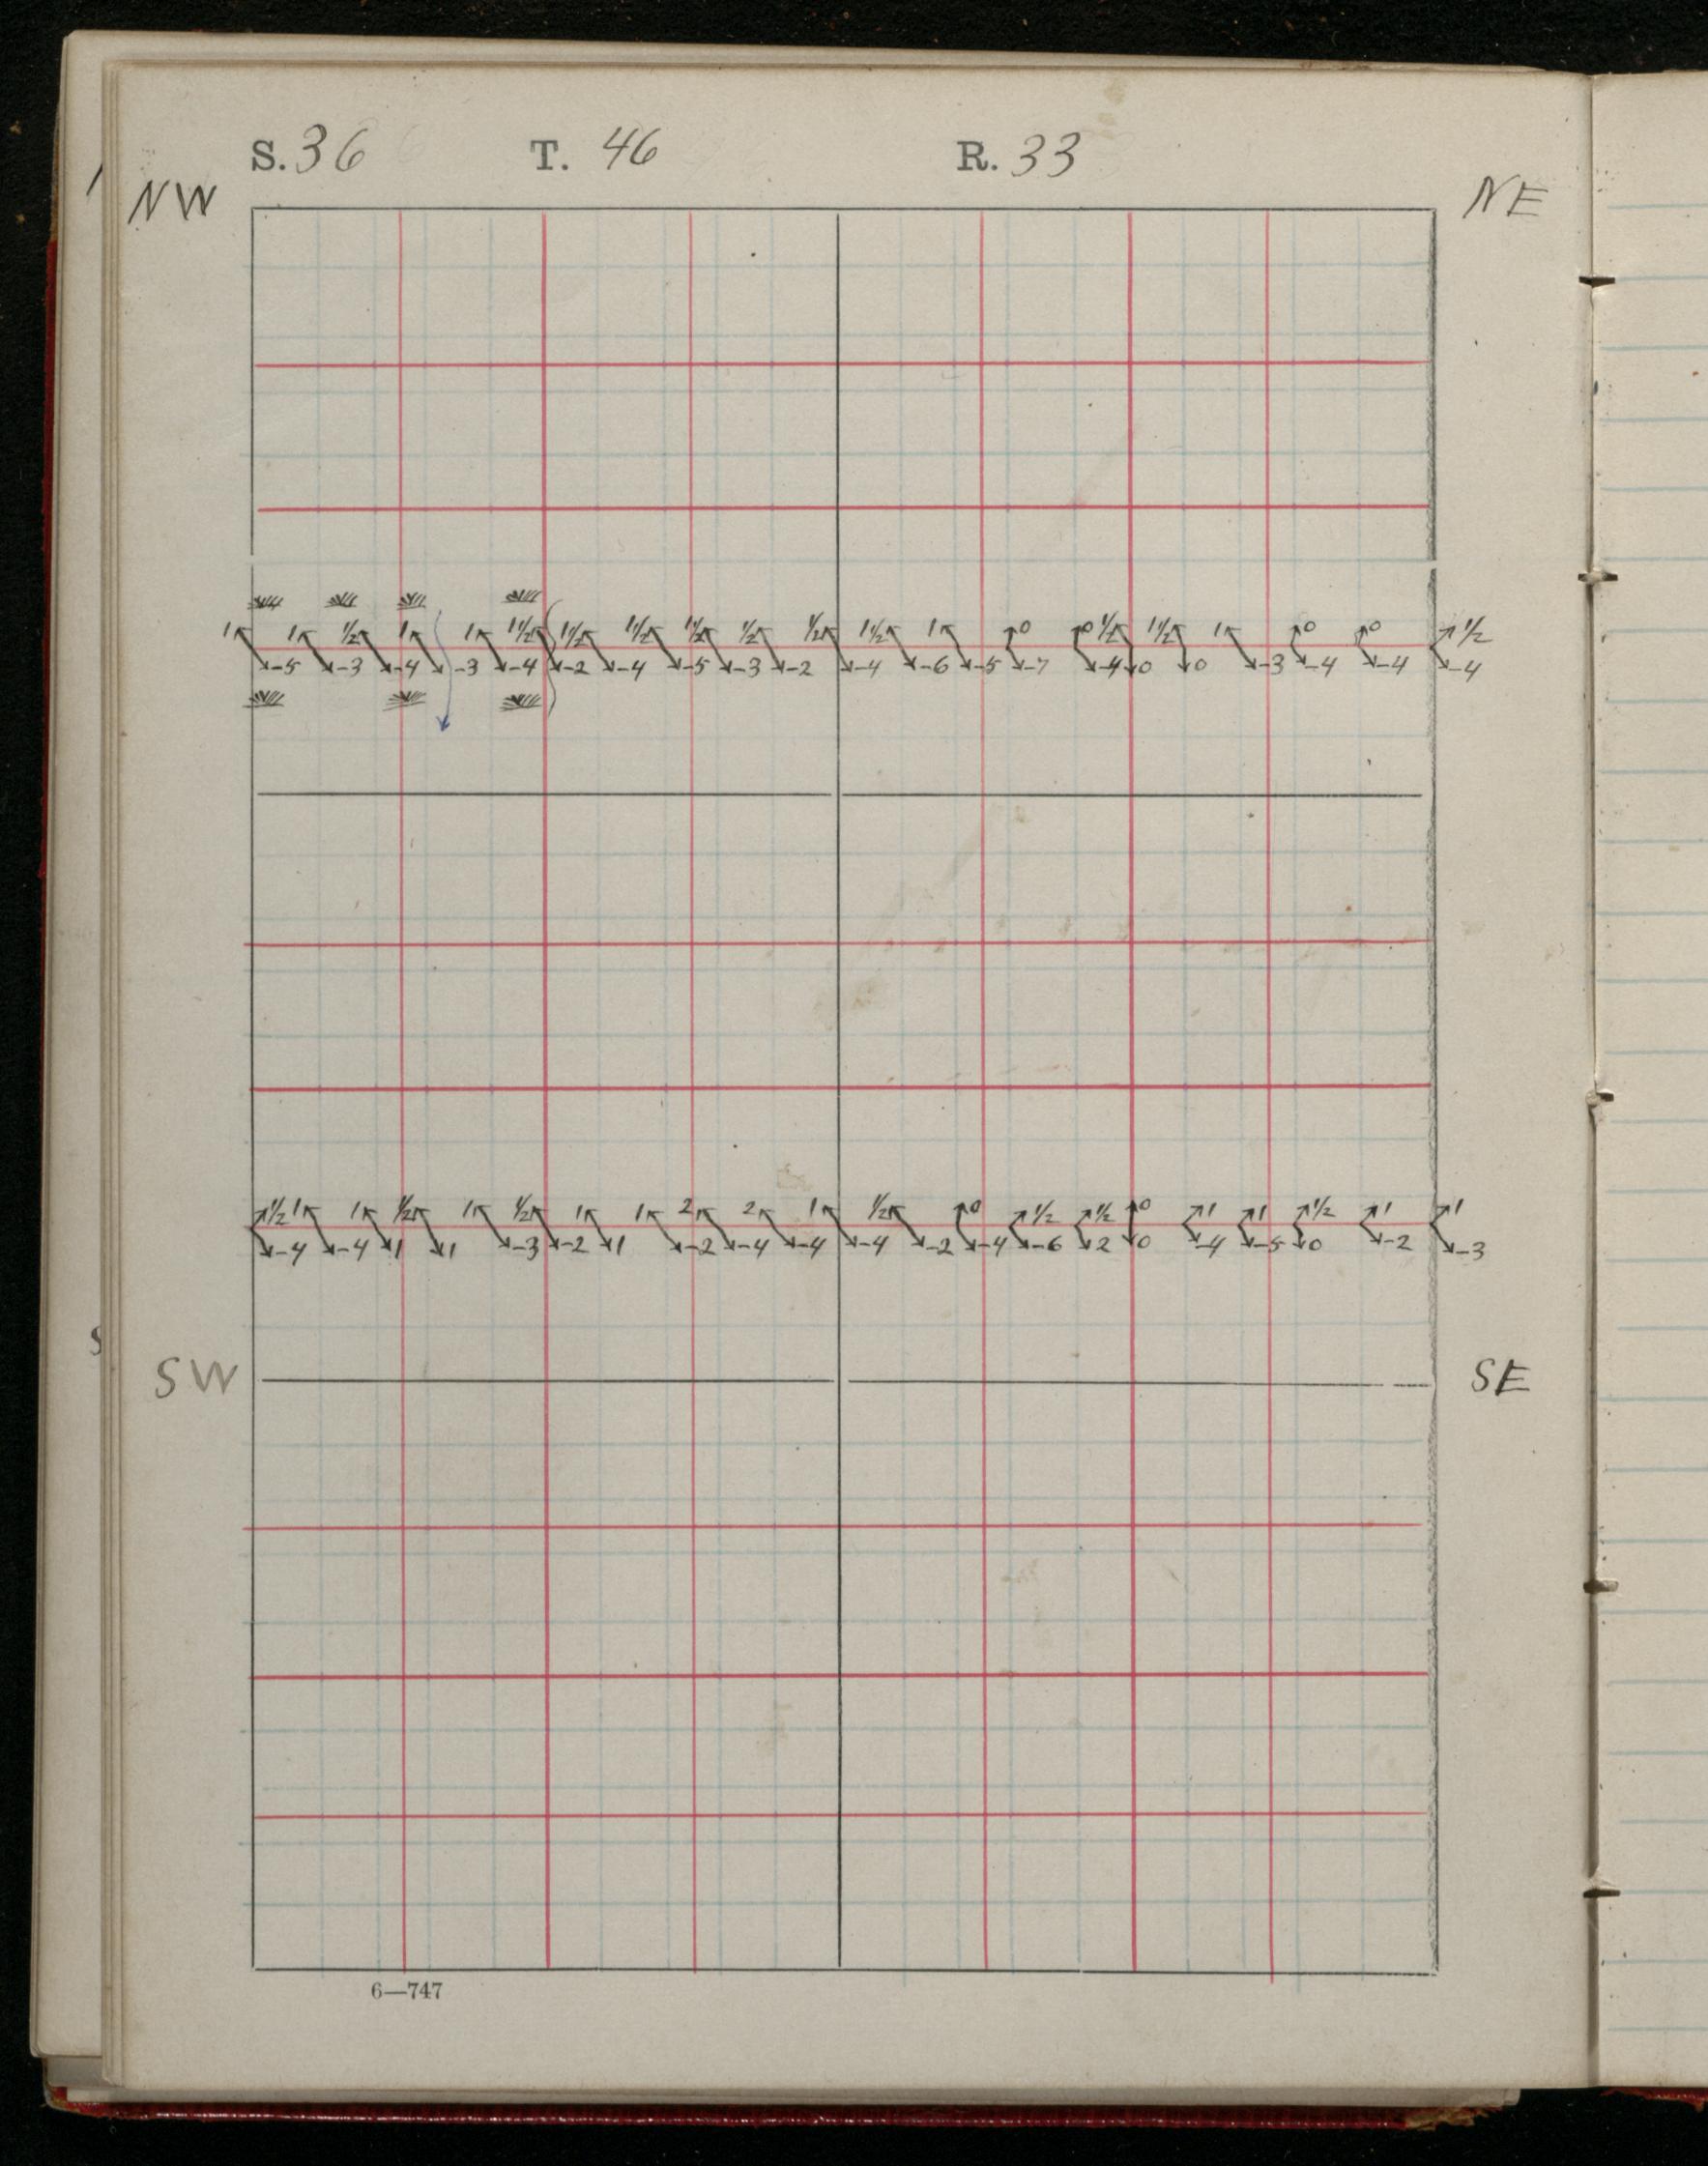 S. 36 T. 46 R. 33
NW NE
1 1 1/2 1 1 1 1/2 1 1/2 1 1/2 1 1/2 1/2 1/2 1 1/2 1 0 0 1/2 1 1/2 1 0 0 1/2
-5 -3 -4 -3 -4 -2 -4 -5 -3 -2 -4 -6 -5 -7 -4 0 0 -3 -4 -4 -4
1/2 1 1 1/2 1 1/2 1 1 2 2 1 1/2 0 1/2 1/2 0 1 1 1/2 1 1
-4 -4 1 1 -3 -2 1 -2 -4 -4 -4 -2 -4 -6 2 0 -4 -5 0 -2 -3
SW SE
6—747